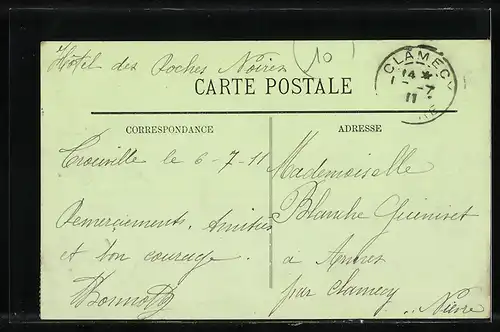 Hôtel des Roches Noires
(10)
CARTE POSTALE
CORRESPONDANCE
ADRESSE
CLAMECY
14 *
-7
11
Trouville le 6-7-11
Remerciements. Amitiés
et bon courage.
Mademoiselle
Blanche
à
par Clamecy
Nièvre